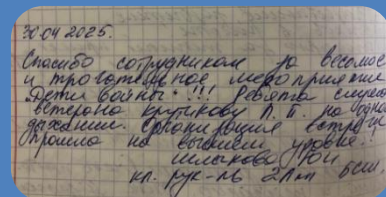 30.04.2025.
Спасибо сотрудникам за
и трогательное мероприятие
"Дети войны" !!! Ребята слушал
ветерана Крутикову Л. П. на одно
дыхании. Организация встречи
прошла на высшем уровне!!
кл. рук-ль